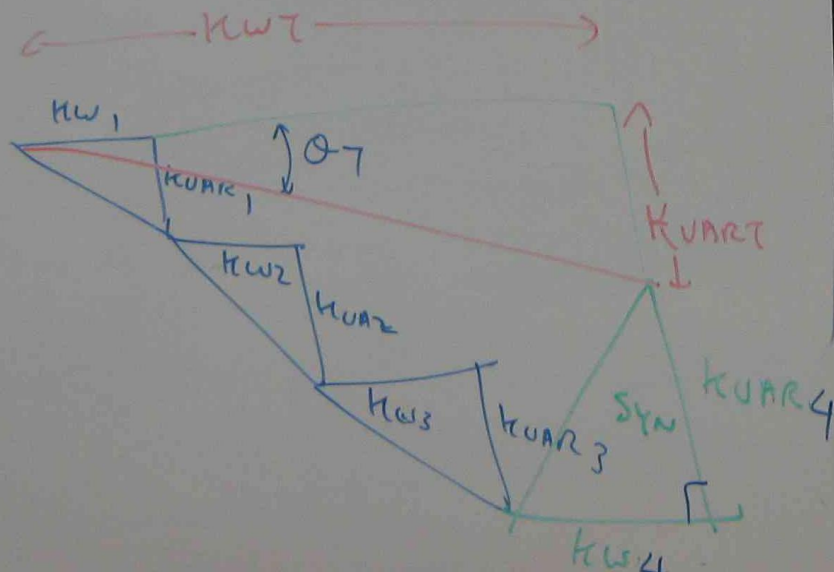 KW T
KW 1
θT
KVAR 1
KVAR T
KW2
KVAR2
KW3
KVAR 3
SYN
KVAR 4
KW4